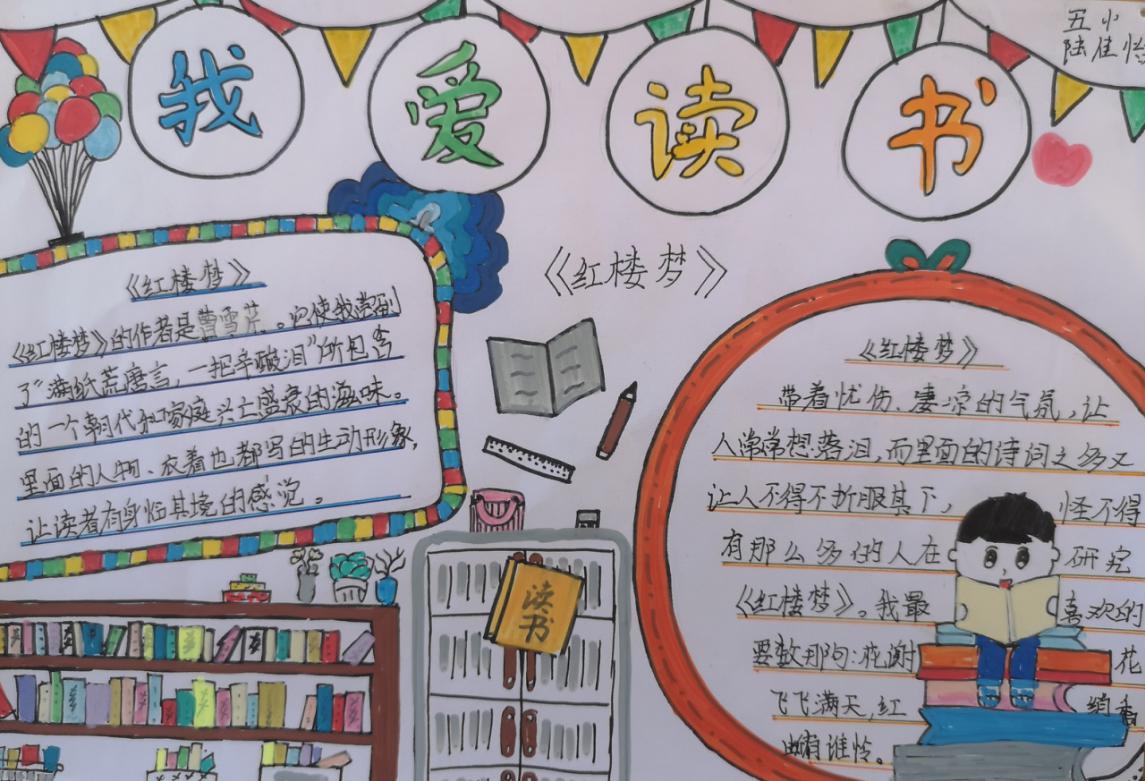 我爱读书
五小
陆佳怡
《红楼梦》
《红楼梦》
《红楼梦》的作者是曹雪芹。它使我尝到
了“满纸荒唐言，一把辛酸泪”所包含
的一个朝代和家庭兴亡盛衰的滋味。
里面的人物、衣着也都写的生动形象，
让读者有身临其境的感觉。
读书
《红楼梦》
带着忧伤、凄凉的气氛，让
人常常想落泪，而里面的诗词之多又
让人不得不折服其下，怪不得
有那么多的人在研究
《红楼梦》。我最喜欢的
要数那句：花谢花
飞飞满天，红绡香
有谁怜。